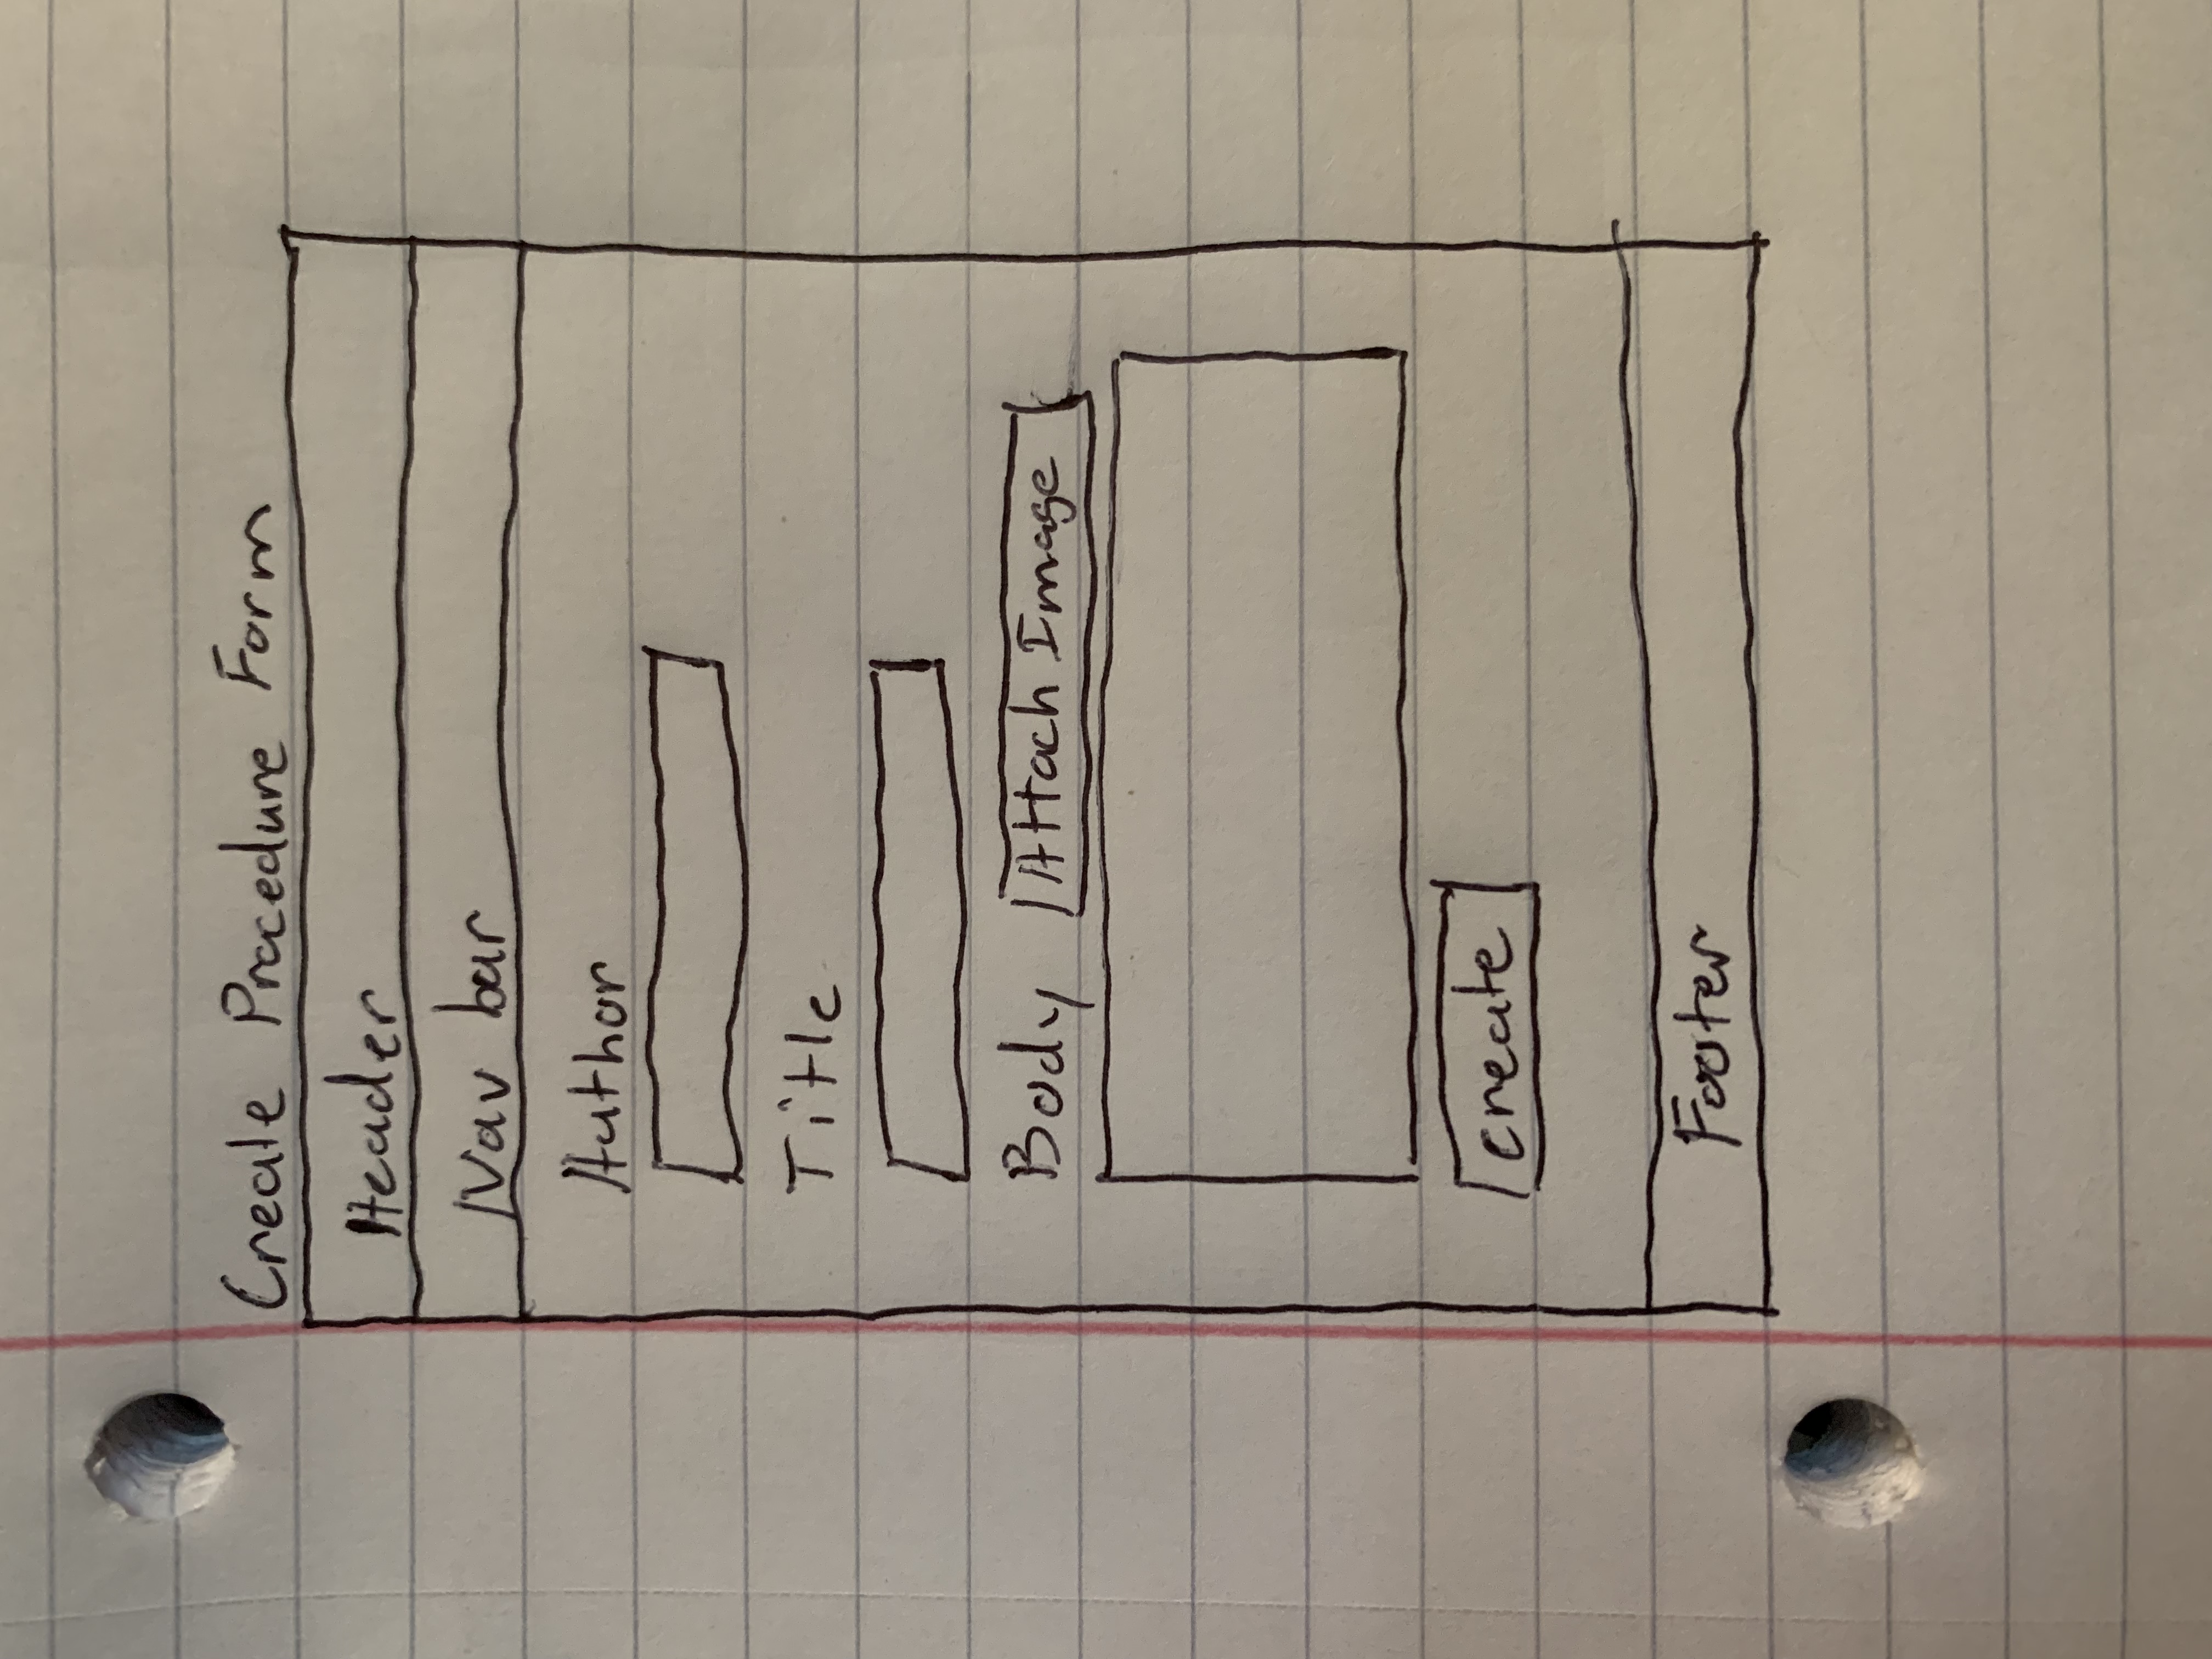 Create Procedure Form
Header
Nav bar
Author
Title
Body Attach Image
create
Footer